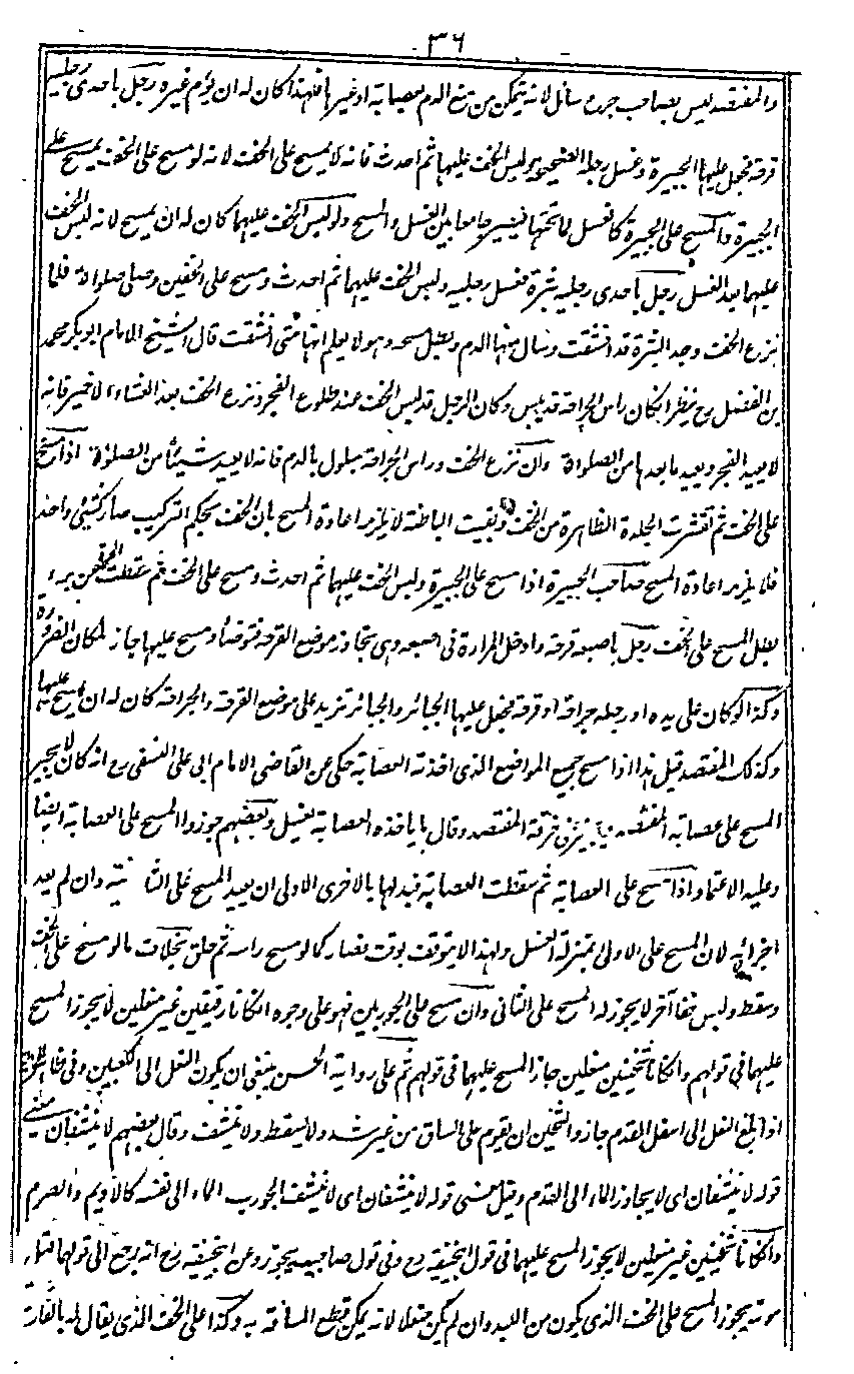 ٣٦
والمفتصد ليس بصاحب جرح سائل لانه يتمكن من منع الدم بعصابة او غيرها فلهذا كان له ان يؤم غيره رجل باحدى رجليه
قرحة فجعل عليها الجبيرة وغسل رجله الصحيحة ولبس الخف عليها ثم احدث فانه لا يمسح على الخف لانه لو مسح على الخف يمسح على
الجبيرة والمسح على الجبيرة كالغسل لما تحتها فيصير جامعا بين الغسل والمسح ولو لبس الخف عليهما كان له ان يمسح لانه لبس الخف
عليهما بعد الغسل رجل باحدى رجليه بثرة فغسل رجليه ولبس الخف عليهما ثم احدث ومسح على الخفين وصلى صلواة فلما
نزع الخف وجد البثرة قد انشقت وسال منها الدم وبطل مسحه وهو لا يعلم انها متى انشقت قال الشيخ الامام ابو بكر محمد
بن الفضل رح ينظر ان كان راس الجراحة قد يبس وكان الرجل قد لبس الخف عند طلوع الفجر ونزع الخف بعد العشاء الاخير فانه
لا يعيد الفجر ويعيد ما بعدها من الصلواة وان نزع الخف وراس الجراحة مبلول بالدم فانه لا يعيد شيئا من الصلوة اذا مسح
على الخف ثم تقشرت الجلدة الظاهرة من الخف وبقيت الباطنة لا يلزمه اعادة المسح بان الخف بحكم التركيب صار كشئ واحد
فلا يلزمه اعادة المسح صاحب الجبيرة اذا مسح على الجبيرة ولبس الخف عليهما ثم احدث ومسح على الخف ثم سقطت عن برء
بطل المسح على الخف رجل باصبعه قرحة وادخل المرارة في اصبعه وهي تجاوز موضع القرحة فتوضأ ومسح عليها جاز لمكان الضرورة
وكذا لو كان على يده او رجله جراحة او قرحة فجعل عليها الجبائر والجبائر تزيد على موضع القرحة والجراحة كان له ان يمسح عليها
وكذلك المفتصد قيل هذا اذا مسح جميع المواضع الذي اخذته العصابة حكي عن القاضي الامام ابي علي النسفي رح انه كان لا يجيز
المسح على عصابة المفتصد خرقة المفتصد وقال ما ياخذه العصابة يغسل وبعضهم جوزوا المسح على العصابة ايضا
وعليه الاعتماد واذا مسح على العصابة ثم سقطت العصابة فبدلها بالاخرى الاولى ان يعيد المسح على الثانية وان لم يعد
اجزاه لان المسح على الاولى بمنزلة الغسل ولهذا لا يتوقت بوقت فصار كما لو مسح راسه ثم حلق بخلاف ما لو مسح على الخف
وسقط ولبس خفا آخر لا يجوز له المسح على الثاني وان مسح على الجوربين فهو على وجوه ان كانا رقيقين غير منعلين لا يجوز المسح
عليهما في قولهم وان كانا ثخينين منعلين جاز المسح عليهما في قولهم ثم على رواية الحسن ينبغي ان يكون النعل الى الكعبين وفي ظاهر الرواية
اذا بلغ النعل الى اسفل القدم جاز والثخين ان يقوم على الساق من غير شد ولا يسقط ولا ينشف وقال بعضهم لا ينشفان معنى
قوله لا ينشفان اى لا يجاوز الماء الى القدم وقيل معنى قوله لا ينشفان اى لا ينشف الجورب الماء الى نفسه كالاديم والصرم
وان كانا ثخينين غير منعلين لا يجوز المسح عليهما في قول ابي حنيفة رح وفي قول صاحبيه يجوز وعن ابي حنيفة رح انه رجع الى قولهما قبل
موته يجوز المسح على الخف الذي يكون من اللبد وان لم يكن منعلا لانه يمكن قطع المسافة به وكذا على الخف الذي يقال له بالفارسية